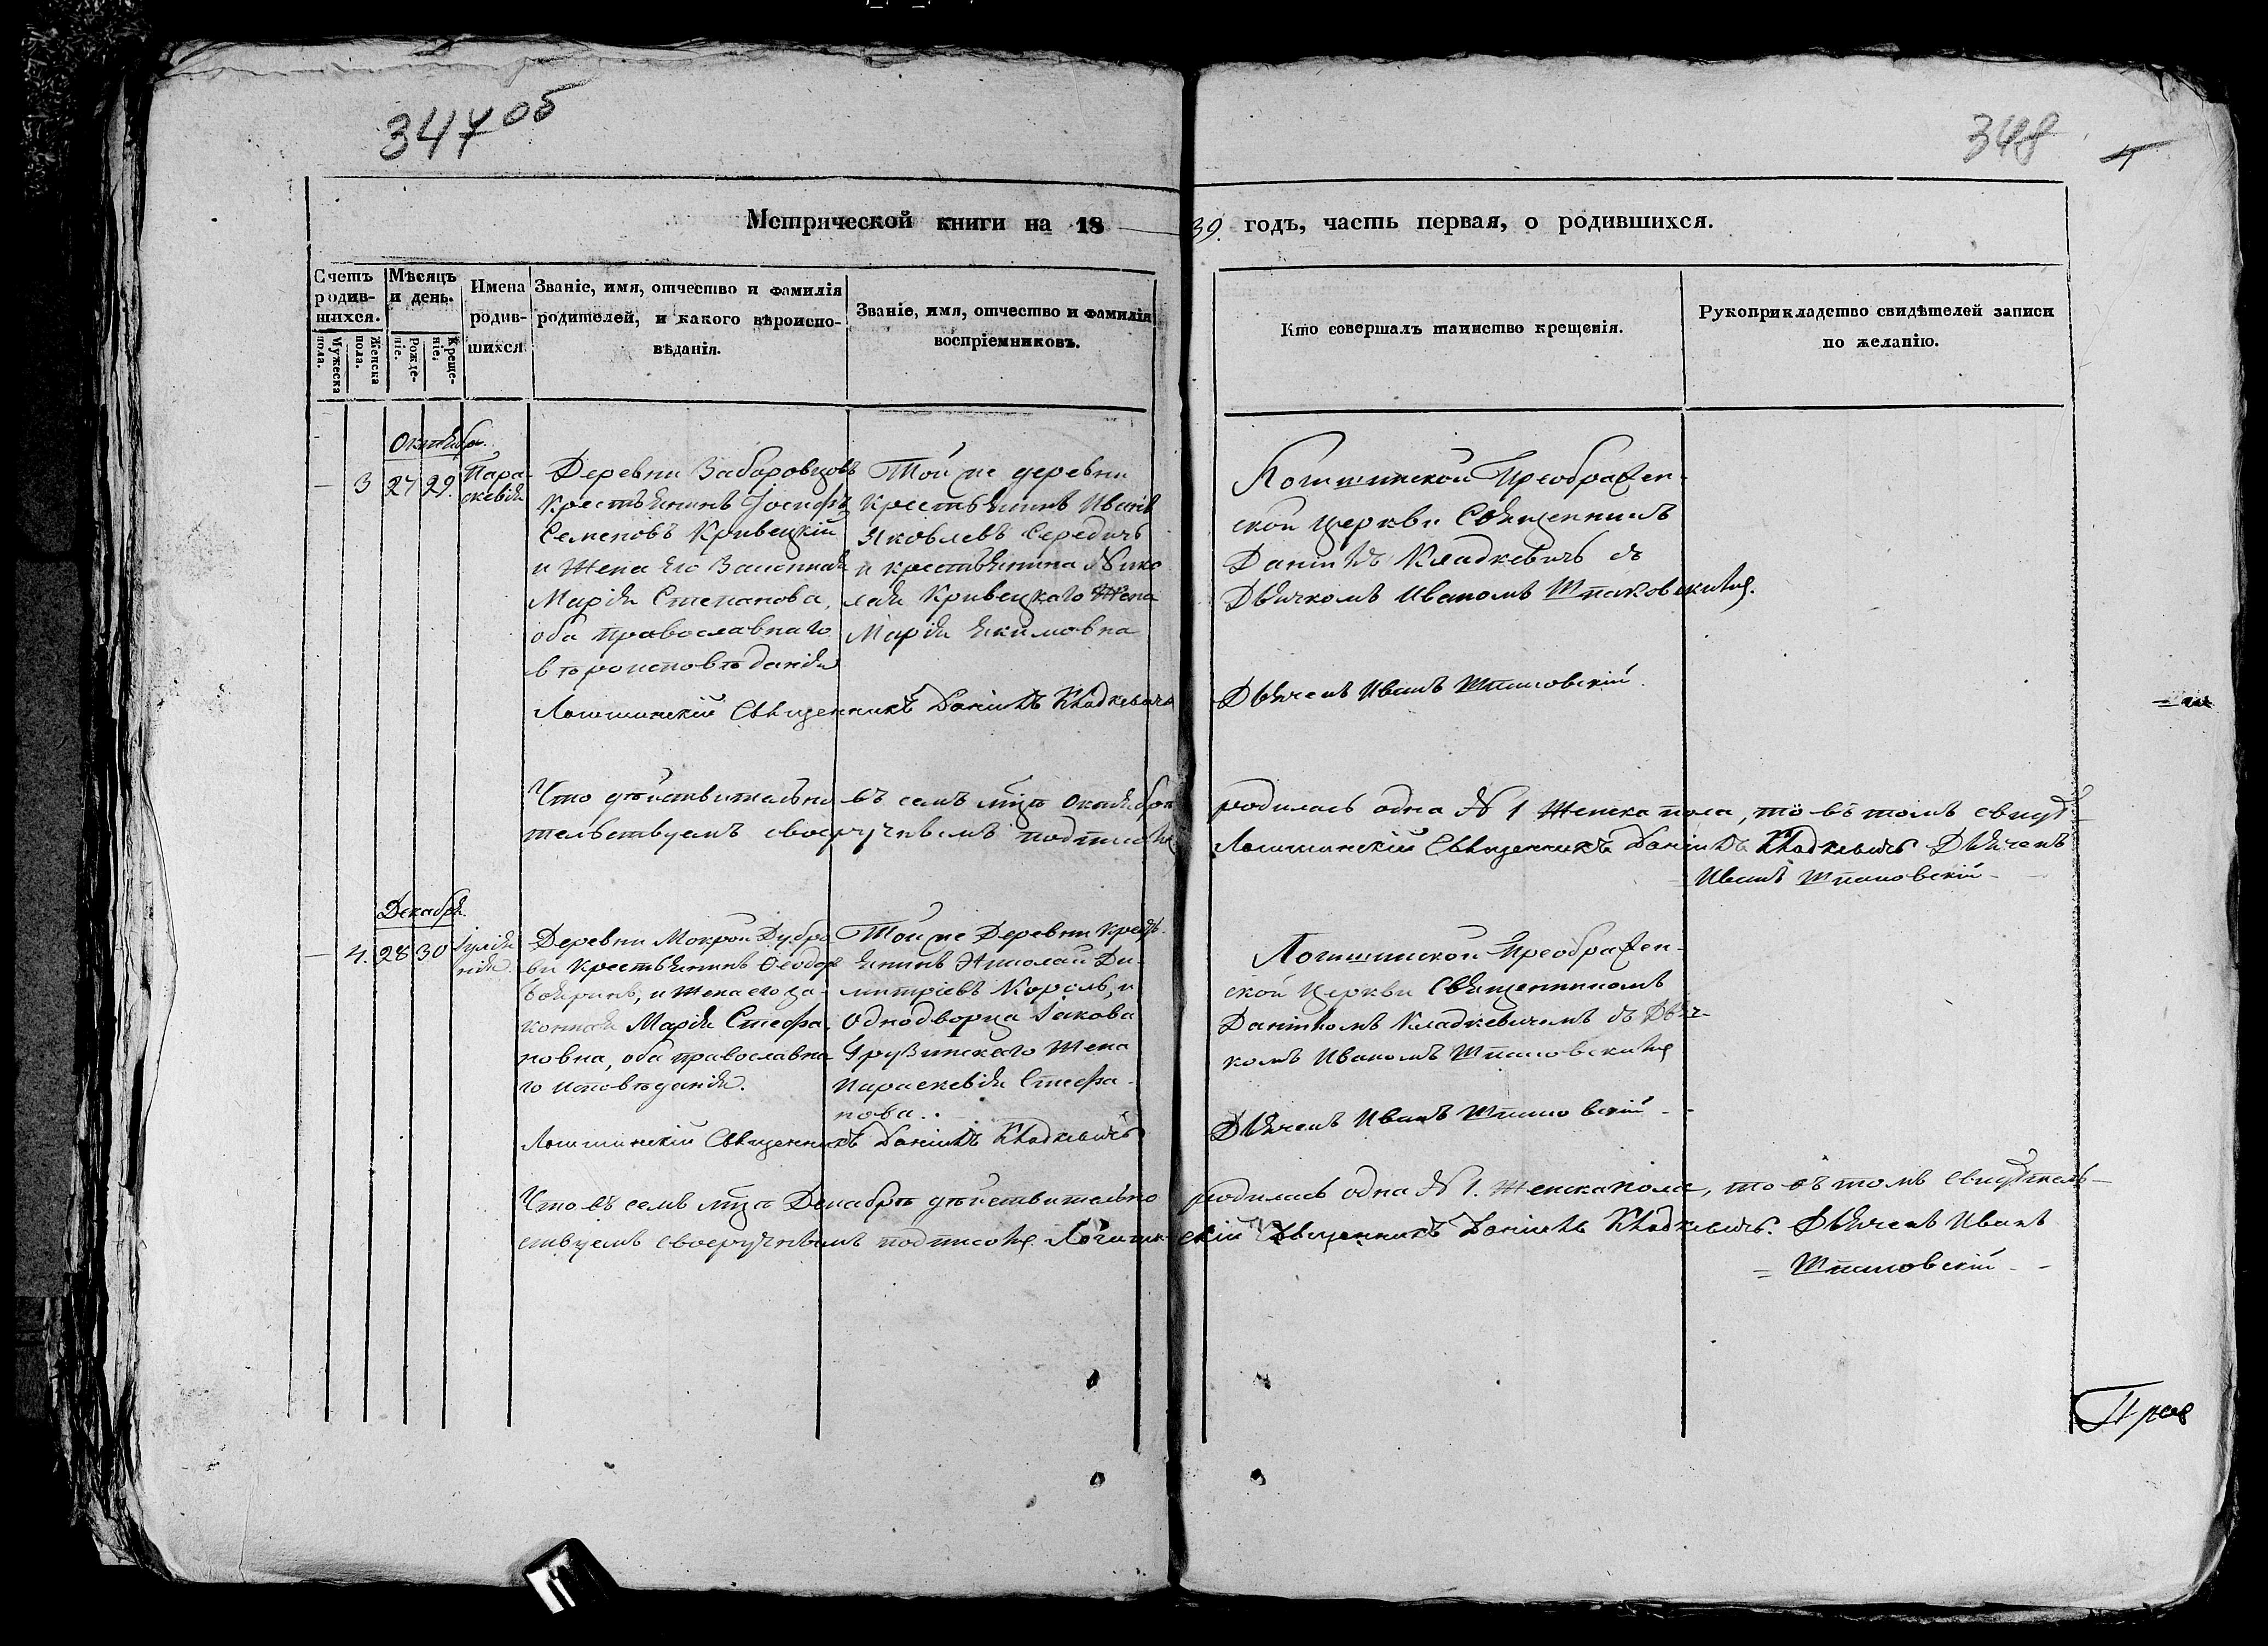 347 об
348
4
Метрической книги на 1839. годъ, часть первая, о родившихся.
Счетъ родив-шихся.
Мужеска пола.
Женска пола.
Мѣсяцъ и день.
Рожде-ніе.
Креще-ніе.
Имена родив-шихся.
Званіе, имя, отчество и фамилія
родителей, и какого вѣроиспо-
вѣданія.
Званіе, имя, отчество и фамилія
воспріемниковъ.
Кто совершалъ таинство крещенія.
Рукоприкладство свидѣтелей записи
по желанію.
Октября.
— 3 27 29.
Пара-
скевія
Деревни Заборовцовъ
Крестьянинъ Іосифъ
Семеновъ Кривецкій
и Жена Его Законная
Марія Степанова,
оба православнаго
вѣроисповѣданія
Той же деревни
Крестьянинъ Иванъ
Яковлевъ Середичъ
и крестьянина Нико
лая Кривецкаго Жена
Марія Екимовна
Логишинской Преображен-
ской церкви Священникъ
Даніилъ Кладкевичъ съ
Дьячкомъ Иваномъ Шпаковскимъ.
Логишинскій Священникъ Даніилъ Кладкевичъ
Дьячекъ Иванъ Шпаковскій.
Что дѣйствительно въ семъ мцѣ Октябрѣ родилась одна № 1 Женска пола, то въ томъ свидѣ-
тельствуемъ своеручнымъ подписомъ Логишинскій Священникъ Даніилъ Кладкевичъ Дьячекъ
Иванъ Шпаковскій
Декабря.
— 4. 28 30
Іулія
нія.
Деревни Мокрой Дубро
вы Крестьянинъ Ѳеодоръ
Бояринъ, и Жена его за-
конная Марія Стефа-
новна, оба православна-
го исповѣданія.
Той же Деревни Кресть-
янинъ Николай Ди-
митріевъ Король, и
Однодворца Іакова
Грузинскаго Жена
Параскевія Стефа-
нова.
Логишинской Преображен-
ской Церкви Священникомъ
Даніиломъ Кладкевичемъ съ Дьяч-
комъ Иваномъ Шпаковскимъ
Логишинскій Священникъ Даніилъ Кладкевичъ
Дьячекъ Иванъ Шпаковскій
Что въ семъ мцѣ Декабрѣ дѣйствительно родилась одна № 1. Женска пола, то въ томъ свидѣтель-
ствуемъ своеручнымъ подписомъ Логишинскій Священникъ Даніилъ Кладкевичъ. Дьячекъ Иванъ
Шпаковскій